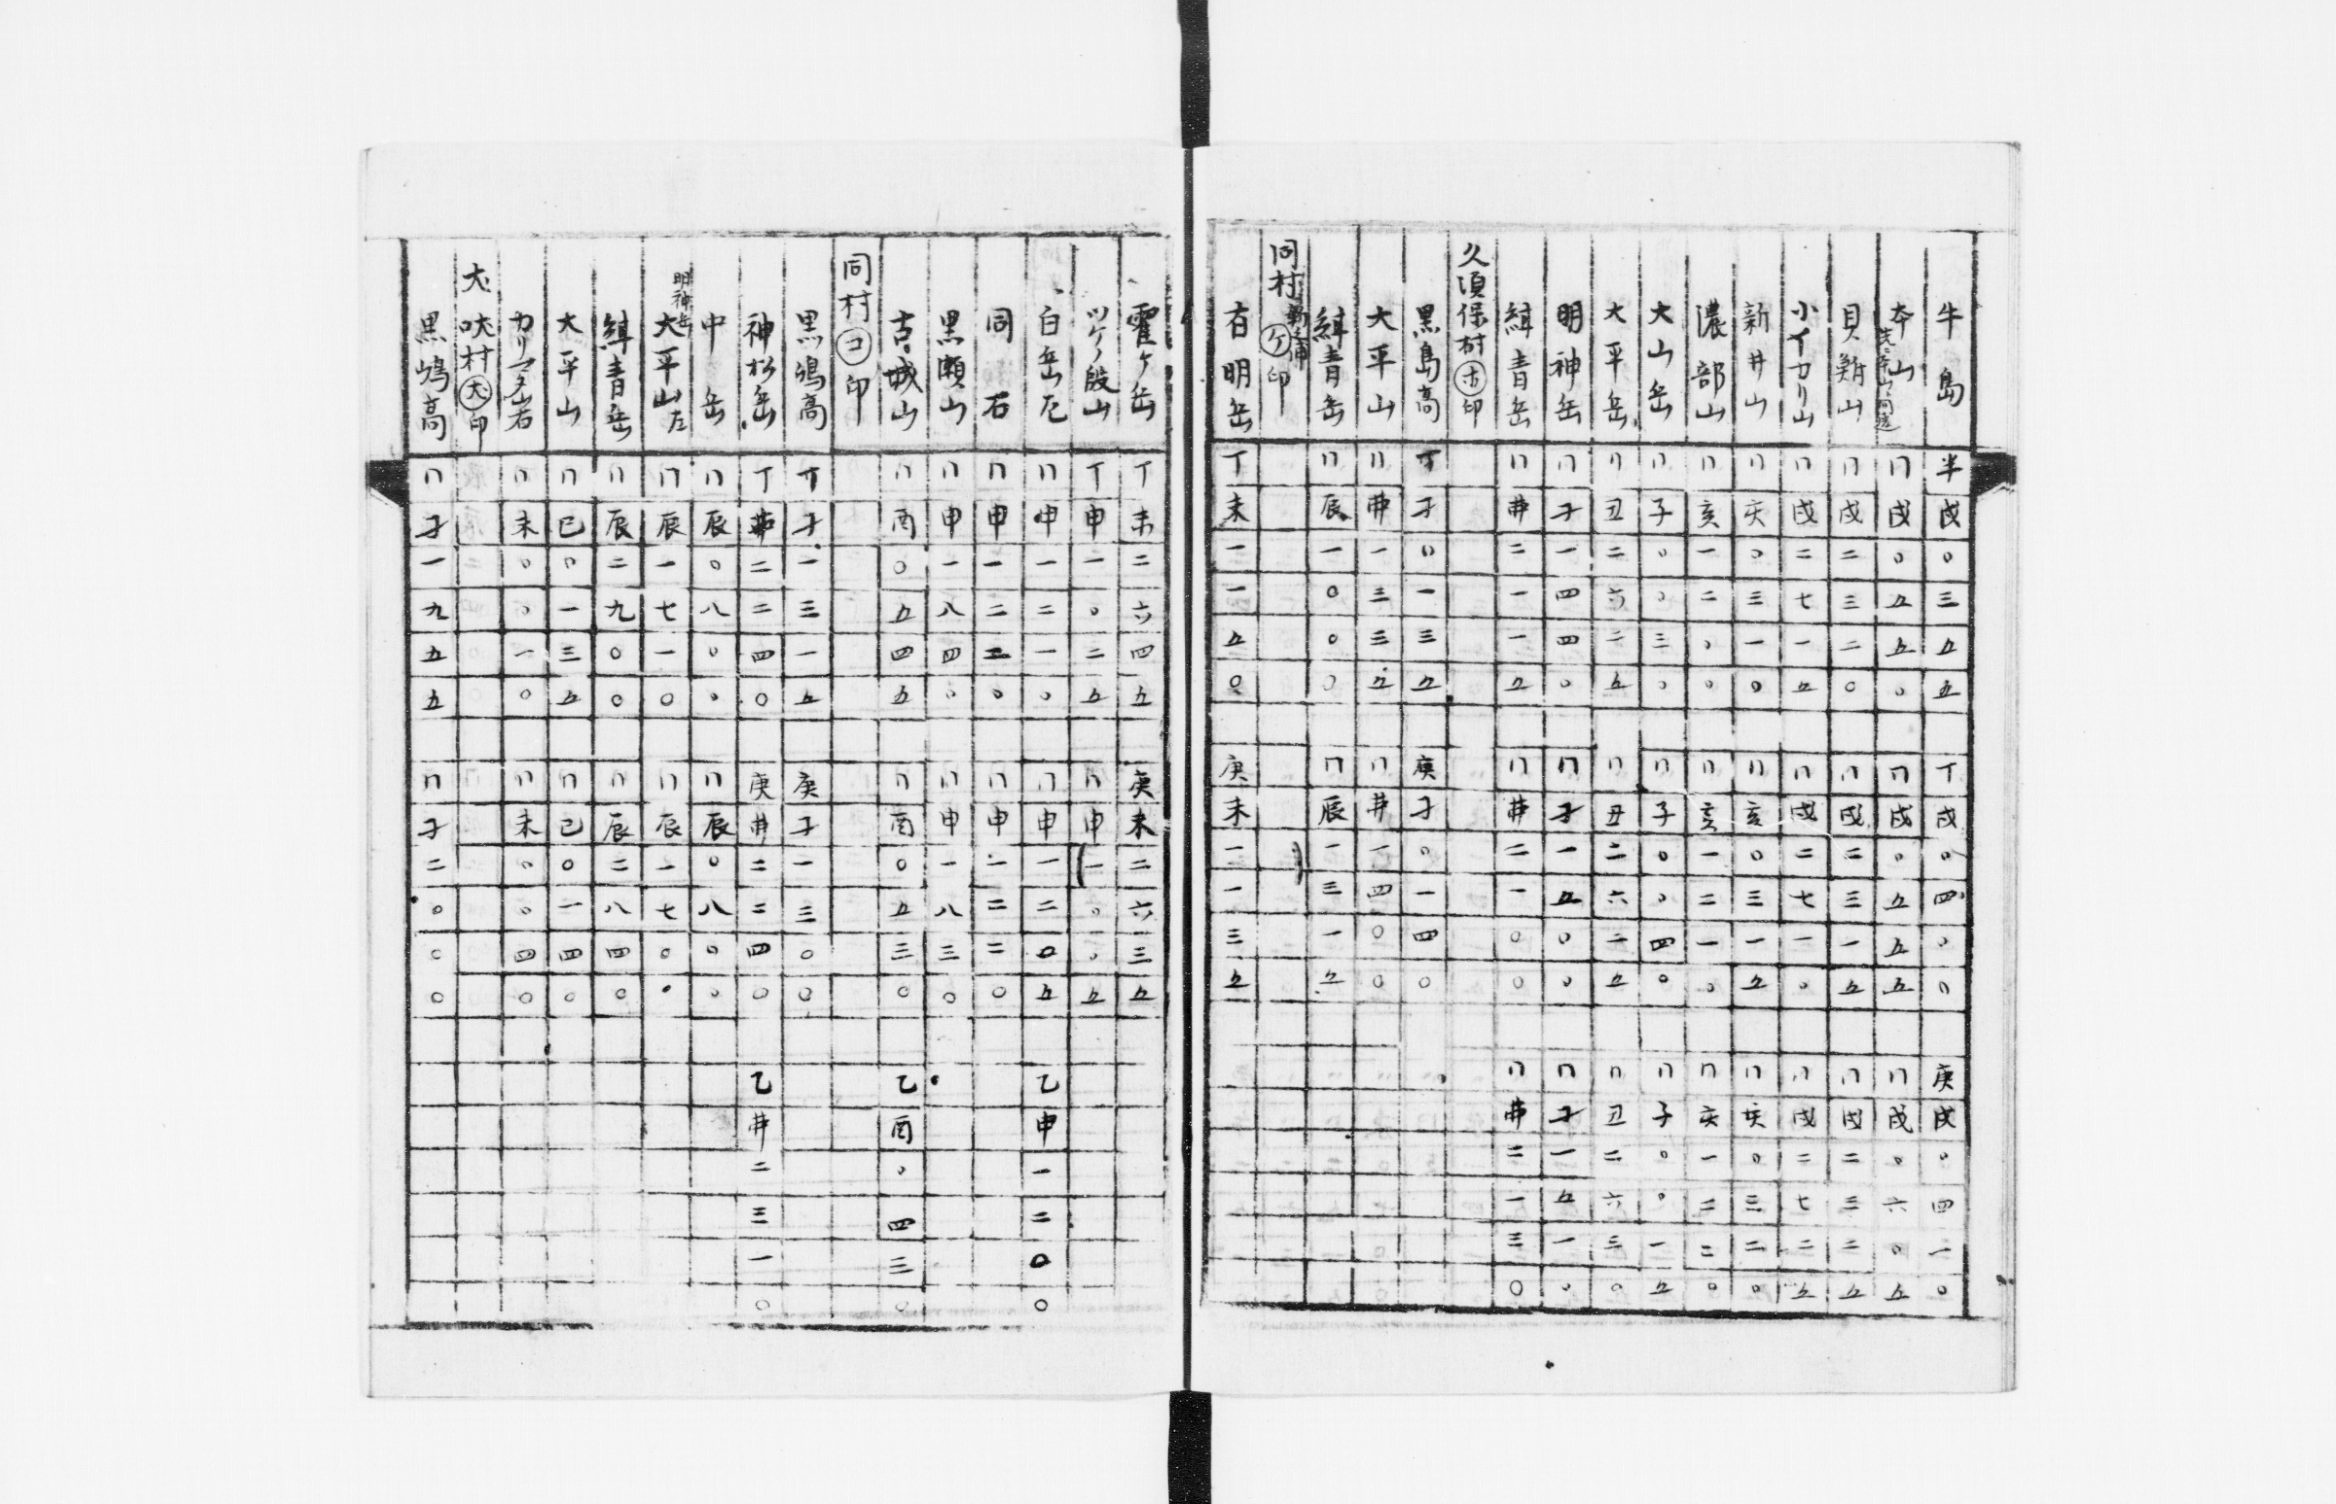 牛島 半戌〇三五五 丁戌〇四〇〇 庚戌〇四一〇
本山 〃戌〇五五〇 〃戌〇五五五 〃戌〇六〇五
貝鮒山 〃戌二三二〇 〃戌二三一五 〃戌二三二五
小イカリ山 〃戌二七一五 〃戌二七一〇 〃戌二七二五
新井山 〃亥〇三一〇 〃亥〇三一五 〃亥〇三二〇
濃部山 〃亥一二〇〇 〃亥一二一〇 〃亥一二二〇
大山岳 〃子〇〇三〇 〃子〇〇四〇 〃子〇〇一五
大平岳 〃丑二六二五 〃丑二六二五 〃丑二六三〇
明神岳 〃子一四四〇 〃子一五〇〇 〃子一五一〇
緋青岳 〃丼二一一五 〃丼二一〇〇 〃丼二一三〇
久須保村㋭印
黒島高 丁子〇一三五 庚子〇一四〇
大平山 〃丼一三三五 〃丼一四〇〇
緋青岳 〃辰一〇〇〇 〃辰一三一五
同村 ㋘印
有明岳 丁未一一五〇 庚未一一三五
霍ヶ岳 丁未二六四五 庚未二六三五
ツケノ殿山 丁申一〇二五 〃申一〇〇五
白岳左 〃申一二一〇 〃申一二〇五 乙申一二〇〇
同 右 〃申一二三〇 〃申一二二〇
黒瀬山 〃申一八四〇 〃申一八三〇
古城山 〃酉〇五四五 〃酉〇五三〇 乙酉〇四三〇
同村㋙印
黒嶋高 丁子一三一五 庚子一三〇〇
神松岳 丁丼二二四〇 庚丼二二四〇 乙丼二三一〇
中岳 〃辰〇八〇〇 〃辰〇八〇〇
明神岳
大平山左 〃辰一七一〇 〃辰一七〇〇
緋青岳 〃辰二九〇〇 〃辰二八四〇
大平山 〃巳〇一三五 〃巳〇一四〇
カリマタ山右 〃未〇〇一〇 〃未〇〇四〇
犬吠村㊅印
黒嶋高 〃子一九五五 〃子二〇〇〇